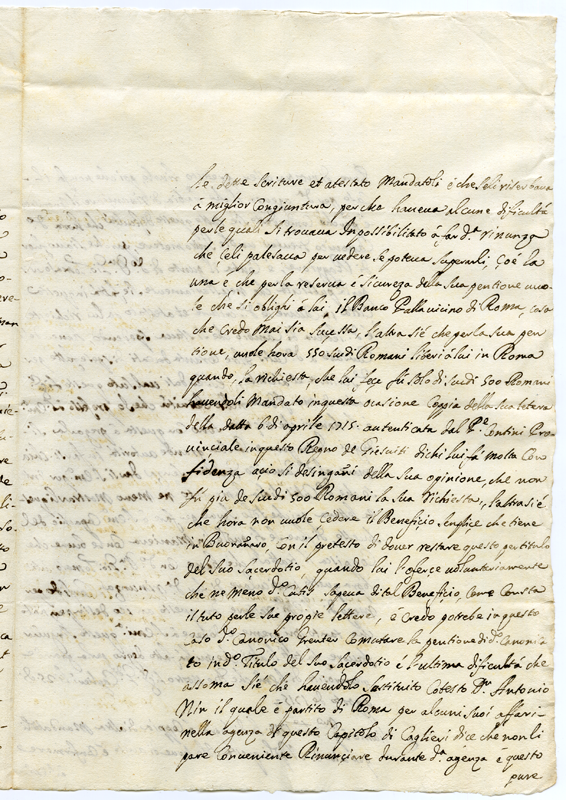 le dette scritture et atestato Mandatoli è che seli riserbava
à miglior Congiuntura, perche haveva alcune dificultà
per le quali si trovava Impossibilitato à far d.ª rinunza
che celi palesava per vedere se poteva superarli, Cioè la
una è che per la reserva è sicurezza della sua pentione vuo-
le che si oblighi à lui il Banco Pallavicino di Roma, cosa
che Credo mai sia, l'altra si è che per la sua pen
tione, vuole hora 550 scudi Romani liberi à lui in Roma
quando la richiesta, che lui fece fu solo di scudi 500 Romani
havendoli Mandato in questa ocasione Coppia della sua letera
della datta 6 di aprile 1715. autenticata dal P.e Pro
vinciale in questo Regno de Giesuiti di chi lui fa molta Con
fidenza acio si desingañi della sua opinione, che non
fu gia de scudi 500 Romani la sua richiesta, l'altra si è
che hora non vuole Cedere il Beneficio senplice che tiene
in Buonanaro, Con il pretesto di dover restare questo per titulo
del suo Sacerdotio quando lui l'oferse voluntariamente
che ne meno d.º sapeva di tal Beneficio, Come Consta
il tuto per le sue propie lettere, è Credo potrebe in questo
Caso d.º Canonico Comutare la pentione di d.º Canonica
to in d.º Titulo del suo Sacerdotio è l'ultima dificultà che
assoma si è che havendolo sostituito Cotesto D.r Antonio
Nin il quale è partito di Roma per alcuni suoi affari
nella agenza di questo Capitolo di Caglieri dice che non li
pare Conveniente Rinunciare durante d.ª agenza è questo
pure